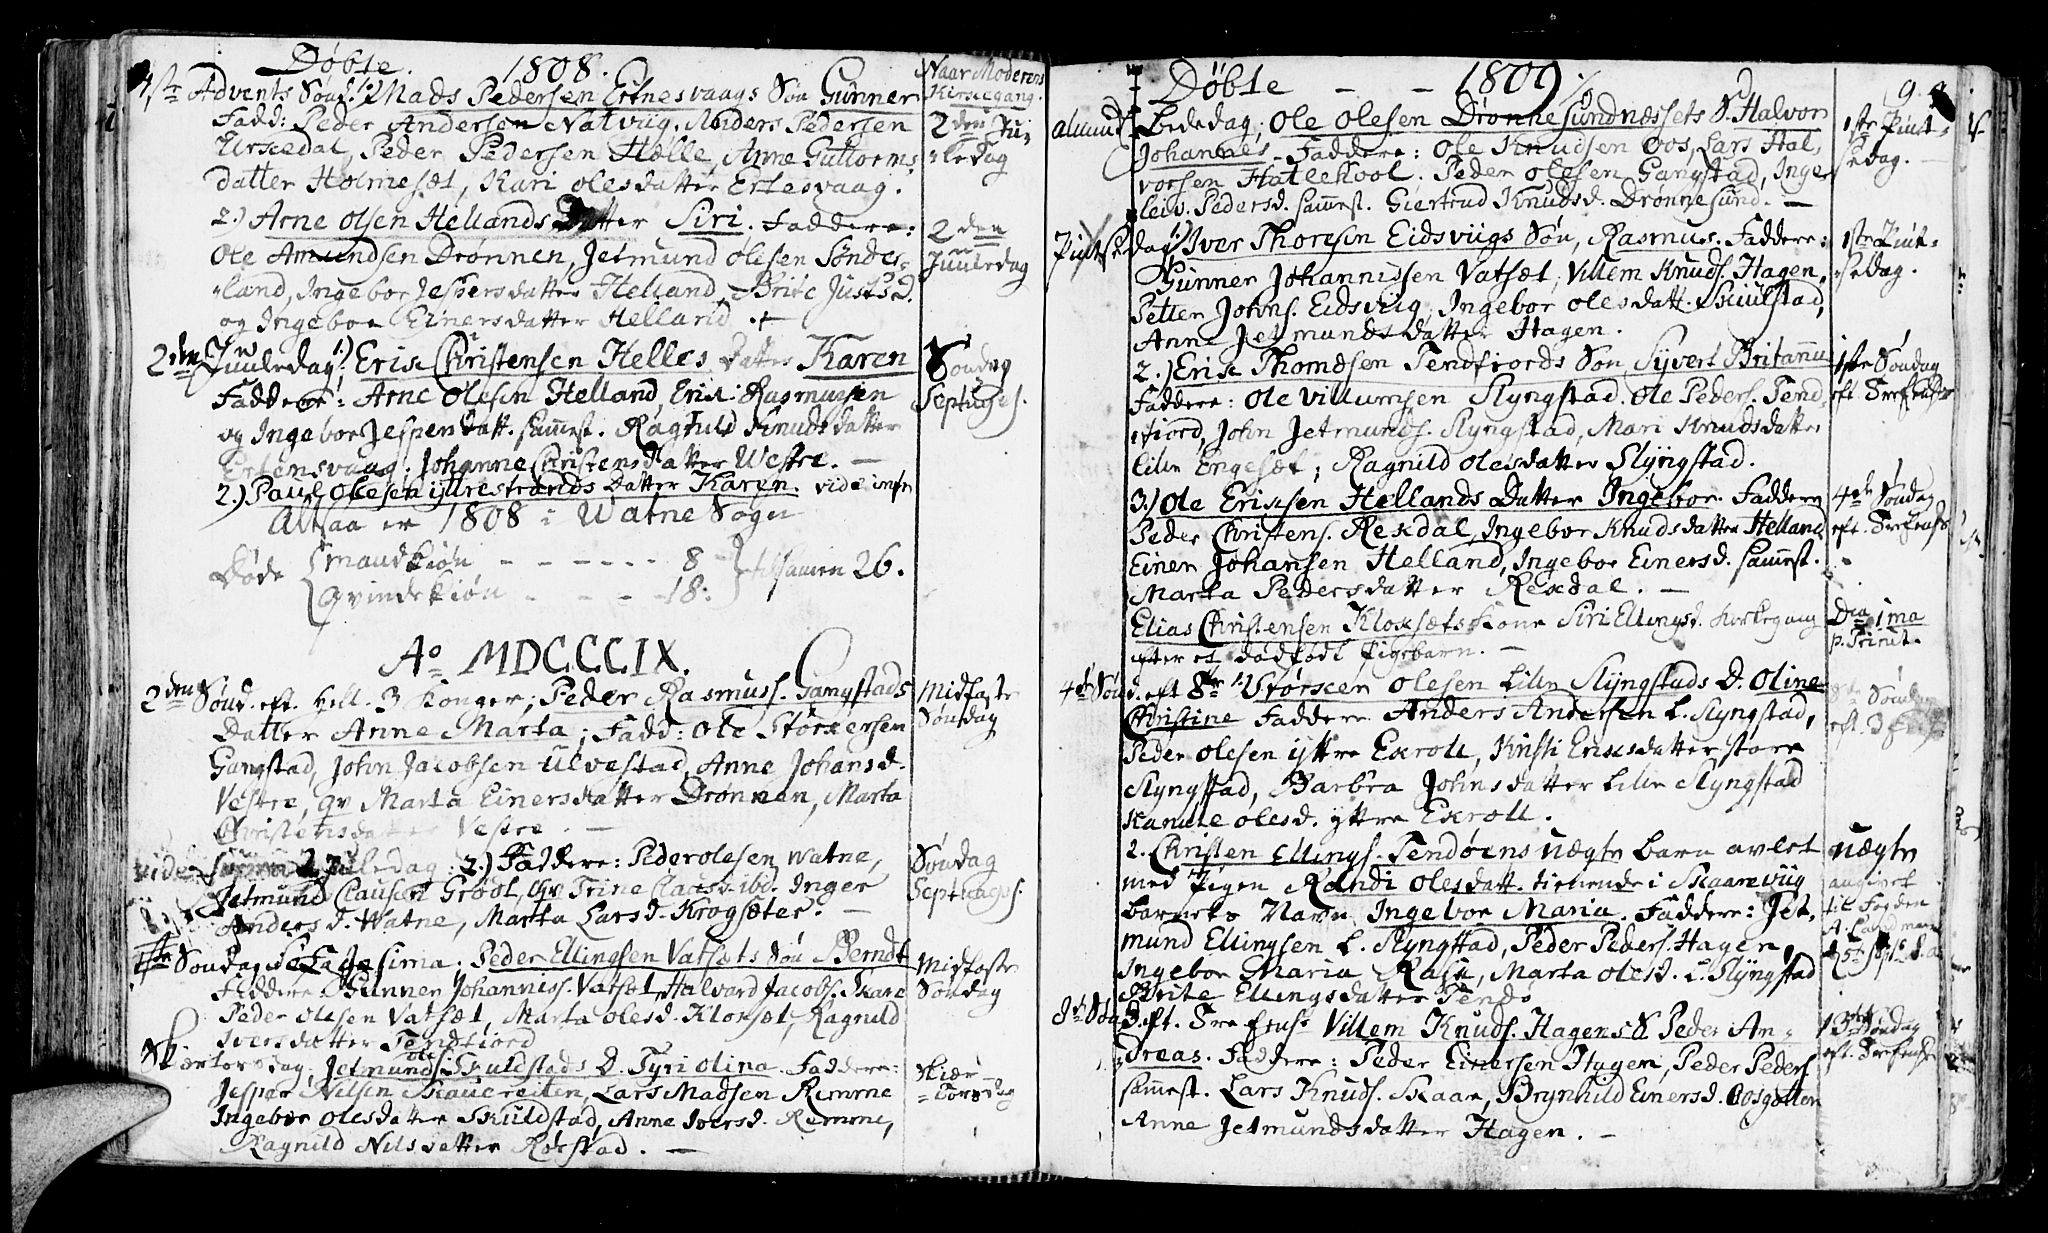 Døbte. 1808.
Naar Moderens
Kirkegang.
4de Advents Sønd. 1.) Mads Pedersen Ertnesvaags Søn Gunner
Fadd: Peder Andersen Natviig, Anders Pedersen
Erxedal, Peder Pedersen Hælle, Anne Guttorms-
datter Holmesæt, Kari Olesdatter Ertesvaag.
2den Ju-
ledag
2.) Arne Olsen Hellands Datter Siri. Faddere:
Ole Amundsen Drønnen, Jetmund Olesen Søndes-
land, Ingebor Jespersdatter Helland, Brite Justsd.
og Ingebor Einersdatter Helland.
2den
Juuledag
2den Juuledag 1.) Erik Christensen Helles Datter Karen
Faddere: Arne Olesen Helland, Erik Rasmussen
og Ingebor Jespersdatt. sammest. Ragnild Knudsdatter
Ertensvaag. Johanne Christensdatter Westre. —
Søndag
Septuages.
2.) Paul Olesen ÿttrestrands Datter Karen. vide infr
Altsaa er 1808 i Watne Sogn
Døde
Mandkiøn - - - - - - 8
Qvindekiøn - - - - 18.
tilsamen 26.
Ao MDCCCIX.
2den Sønd. eft. Hell. 3 Konger; Peder Rasmuss. Gangstads
Datter Anne Marta; Fadd: Ole Størkersen
Gangstad, John Jacobsen Ulvestad, Anne Johansd.
Vestre, qv Marta Einersdatter Drønnen, Marta
Christensdatter Vestre. —
Midfaste
Søndag
vide 2 Juledag 2.) Faddere: Peder Olesen Watne,
Jetmund Clausen Groot, qv Trine Clausd. ibd. Inger
Andersd. Watne, Marta Larsd. Krogsæter. —
Søndag
Septuages.
Søndag Sexagesima. Peder Ellingsen Vatsæts Søn Berndt
Faddere Gunner Johanniss. Vatsæt, Halvard Jacobs. Skare
Peder Olesen Vatsæt, Marta Olesd. Kloksæt, Ragnild
Iversdatter Tendfiord
Midfaste
Søndag
Skiærtorsdag. Jetmund Ols. Skuldstads D. Tyri Olina. Faddere:
Jesper Nilsen Skaaereiten, Lars Madsen Remme
Ingebor Olesdatter Skuldstad, Anne Iversd. Remme,
Ragnild Nilsdatter Rørstad. —
Skiær
Torsdag
Døbte - - 1809
9.
almind. Bededag; Ole Olesen Drønnesundnæssets S. Halvor
Johannes. Faddere: Ole Knudsen Vos, Lars Hal-
vorsen Hatlehool. Peder Olesen Gangstad, Inge-
leiv. Pedersd. sammest. Giertrud Knudsd. Drønnesund. —
1ste Pint-
sedag. —
Pintsedag 1.) Iver Thoresen Eidsviigs Søn, Rasmus. Faddere:
Gunner Johannissen Vatsæt, Villem Knuds. Hagen,
Petter Johns. Eidsviig, Ingebor Olesdatt. Skuulstad,
Anne Jetmundsdatter Hagen.
1ste Pint-
sedag.
2.) Erik Thomdsen Tendfiords Søn Sÿvert Britannu
Faddere: Ole Villumsen Slÿngstad. Ole Peders. Tend-
fiord, John Jetmunds. Slyngstad, Mari Knudsdatter
lille Engesæt; Ragnild Olesdatter Slÿngstad.
1ste Søndag
eft. Trefoldh.
3.) Ole Eriksen Hellands Datter Ingebor. Faddere
Peder Christens. Rexdal, Ingebor Knudsdatter Helland
Einer Johansen Helland, Ingebor Einersd. sammest.
Marta Pedersdatter Rexdal. —
4de Søndag
eft. Trefoldh.
Elias Christensen Kloksæts Kone Siri Ellingsd. Kirkegang
efter et dødfødt Pigebarn. —
Dca 1ma
p. Trinit.
4de Sønd. eft 1. Størker Olesen Lille Slÿngstads D. Oline
Christine Faddere Anders Andersen L. Slyngstad,
Peder Olesen ÿttre Exroll, Kirsti Eriksdatter store
Slyngstad, Barbra Johnsdatter Lille Slyngstad
Olesd. ÿttre Exroll.
Søndag
eft. 3
2. Christen Ellings. Tendøens uægte Barn avlet
med Pigen Randi Olesdatt. tienende i Skaareviig
Barnets Navn, Ingebor Maria. Faddere: Jet-
mund Ellingsen L. Slyngstad, Peder Peders. Hagen,
Ingebor Maria, Marta Olesd. L. Slÿngstad
Brite Ellingsdatter Tendø
uægte
angivet
til Fogden
8de Sønd. eft. Villem Knuds. Hagens S. Peder An-
dreas. Faddere: Peder Einersen Hagen, Peder Peders.
sammest. Lars Knuds. Skaar, Brynhild Einersd.
Anne Jetmundsdatter Hagen. —
Søndag